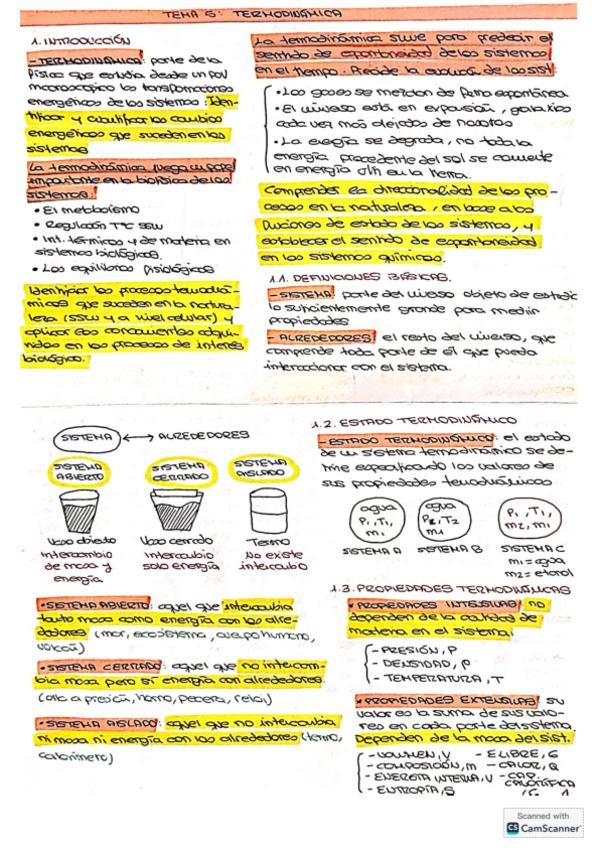 TEMA 5: TERMODINÁMICA
1. INTRODUCCIÓN
- TERMODINÁMICA: parte de la
física que estudia desde un pov
macroscópico las transformaciones
energéticas de los sistemas. Iden-
tificar y cuantificar los cambios
energéticos que suceden en los
sistemas
La termodinámica juega un papel
importante en la biofísica de los
sistemas.
• El metabolismo
• Regulación Tª SSVV
• Int. térmicos y de materia en
sistemas biológicos.
• Los equilibrios fisiológicos
Identificar los procesos termodiná-
micos que suceden en la natura-
leza (SSVV y a nivel celular) y
aplicar los conocimientos adqui-
ridos en los procesos de interés
biológico.
La termodinámica sirve para predecir el
sentido de espontaneidad de los sistemas
en el tiempo. Predice la evolución de los sist.
• Los gases se mezclan de forma espontánea.
• El universo está en expansión, galaxias
cada vez más alejadas de nosotros
• La energía se degrada, no toda la
energía procedente del sol se convierte
en energía útil en la tierra.
Comprender la direccionalidad de los pro-
cesos en la naturaleza, en base a las
funciones de estado de los sistemas, y
establecer el sentido de espontaneidad
en los sistemas químicos.
1.1. DEFINICIONES BÁSICAS.
- SISTEMA: parte del universo objeto de estudio
lo suficientemente grande para medir
propiedades
- ALREDEDORES: el resto del universo, que
comprende toda parte de él que pueda
interaccionar con el sistema.
SISTEMA ↔ ALREDEDORES
SISTEMA ABIERTO
SISTEMA CERRADO
SISTEMA AISLADO
Vaso abierto
Intercambio
de masa y
energía
Vaso cerrado
Intercambio
solo energía
Termo
No existe
intercambio
• SISTEMA ABIERTO: aquel que intercambia
tanto masa como energía con los alre-
dedores (mar, ecosistema, cuerpo humano,
volcán)
• SISTEMA CERRADO: aquel que no intercam-
bia masa pero sí energía con alrededores
(olla a presión, horno, pecera, reloj)
• SISTEMA AISLADO: aquel que no intercambia
ni masa ni energía con los alrededores (termo,
calorímetro)
1.2. ESTADO TERMODINÁMICO
- ESTADO TERMODINÁMICO: el estado
de un sistema termodinámico se de-
fine especificando los valores de
sus propiedades termodinámicas
agua
P1, T1,
m1
SISTEMA A
agua
P2, T2
m1
SISTEMA B
P1, T1,
m2, m1
SISTEMA C
m1 = agua
m2 = etanol
1.3. PROPIEDADES TERMODINÁMICAS
• PROPIEDADES INTENSIVAS: no
dependen de la cantidad de
materia en el sistema.
- PRESIÓN, P
- DENSIDAD, ρ
- TEMPERATURA, T
• PROPIEDADES EXTENSIVAS: su
valor es la suma de sus valo-
res en cada parte del sistema.
Dependen de la masa del sist.
- VOLUMEN, V - E.LIBRE, G
- COMPOSICIÓN, m - CALOR, Q
- ENERGÍA INTERNA, U - CAP. CALORÍFICA
- ENTROPÍA, S
1
Scanned with
CS CamScanner